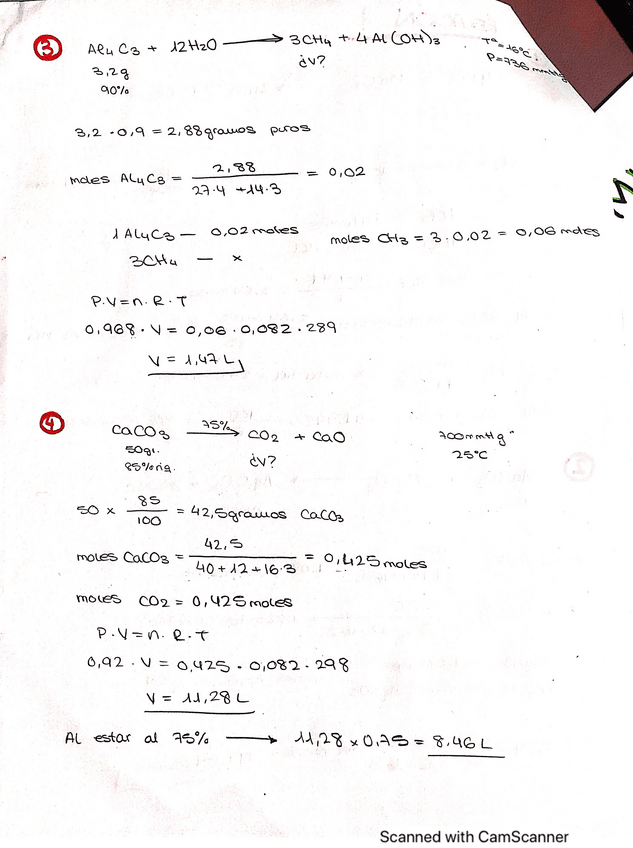 3
Al4C3 + 12H2O → 3CH4 + 4Al(OH)3
Tª=16ºC.
P=736 mmHg
3,2g
¿V?
90%
3,2 · 0,9 = 2,88 gramos puros
moles Al4C3 = 2,88 / 27·4 + 14·3 = 0,02
1 Al4C3 — 0,02 moles
moles CH3 = 3 · 0,02 = 0,06 moles
3CH4 — x
P·V = n·R·T
0,968 · V = 0,06 · 0,082 · 289
V = 1,47 L
4
CaCO3 75% → CO2 + CaO
700mmHg
50gr.
¿V?
25ºC
85% riq.
50 x 85/100 = 42,5 gramos CaCO3
moles CaCO3 = 42,5 / 40+12+16·3 = 0,425 moles
moles CO2 = 0,425 moles
P·V = n·R·T
0,92 · V = 0,425 · 0,082 · 298
V = 11,28 L
Al estar al 75% → 11,28 x 0,75 = 8,46 L
Scanned with CamScanner